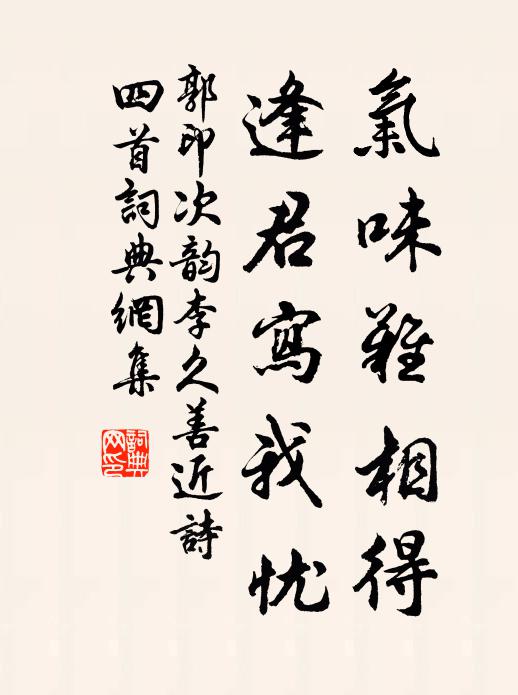 氣味難相得
逢君寫我忧
郭印次韵李久善近詩
四首詞典網集
詞典网印